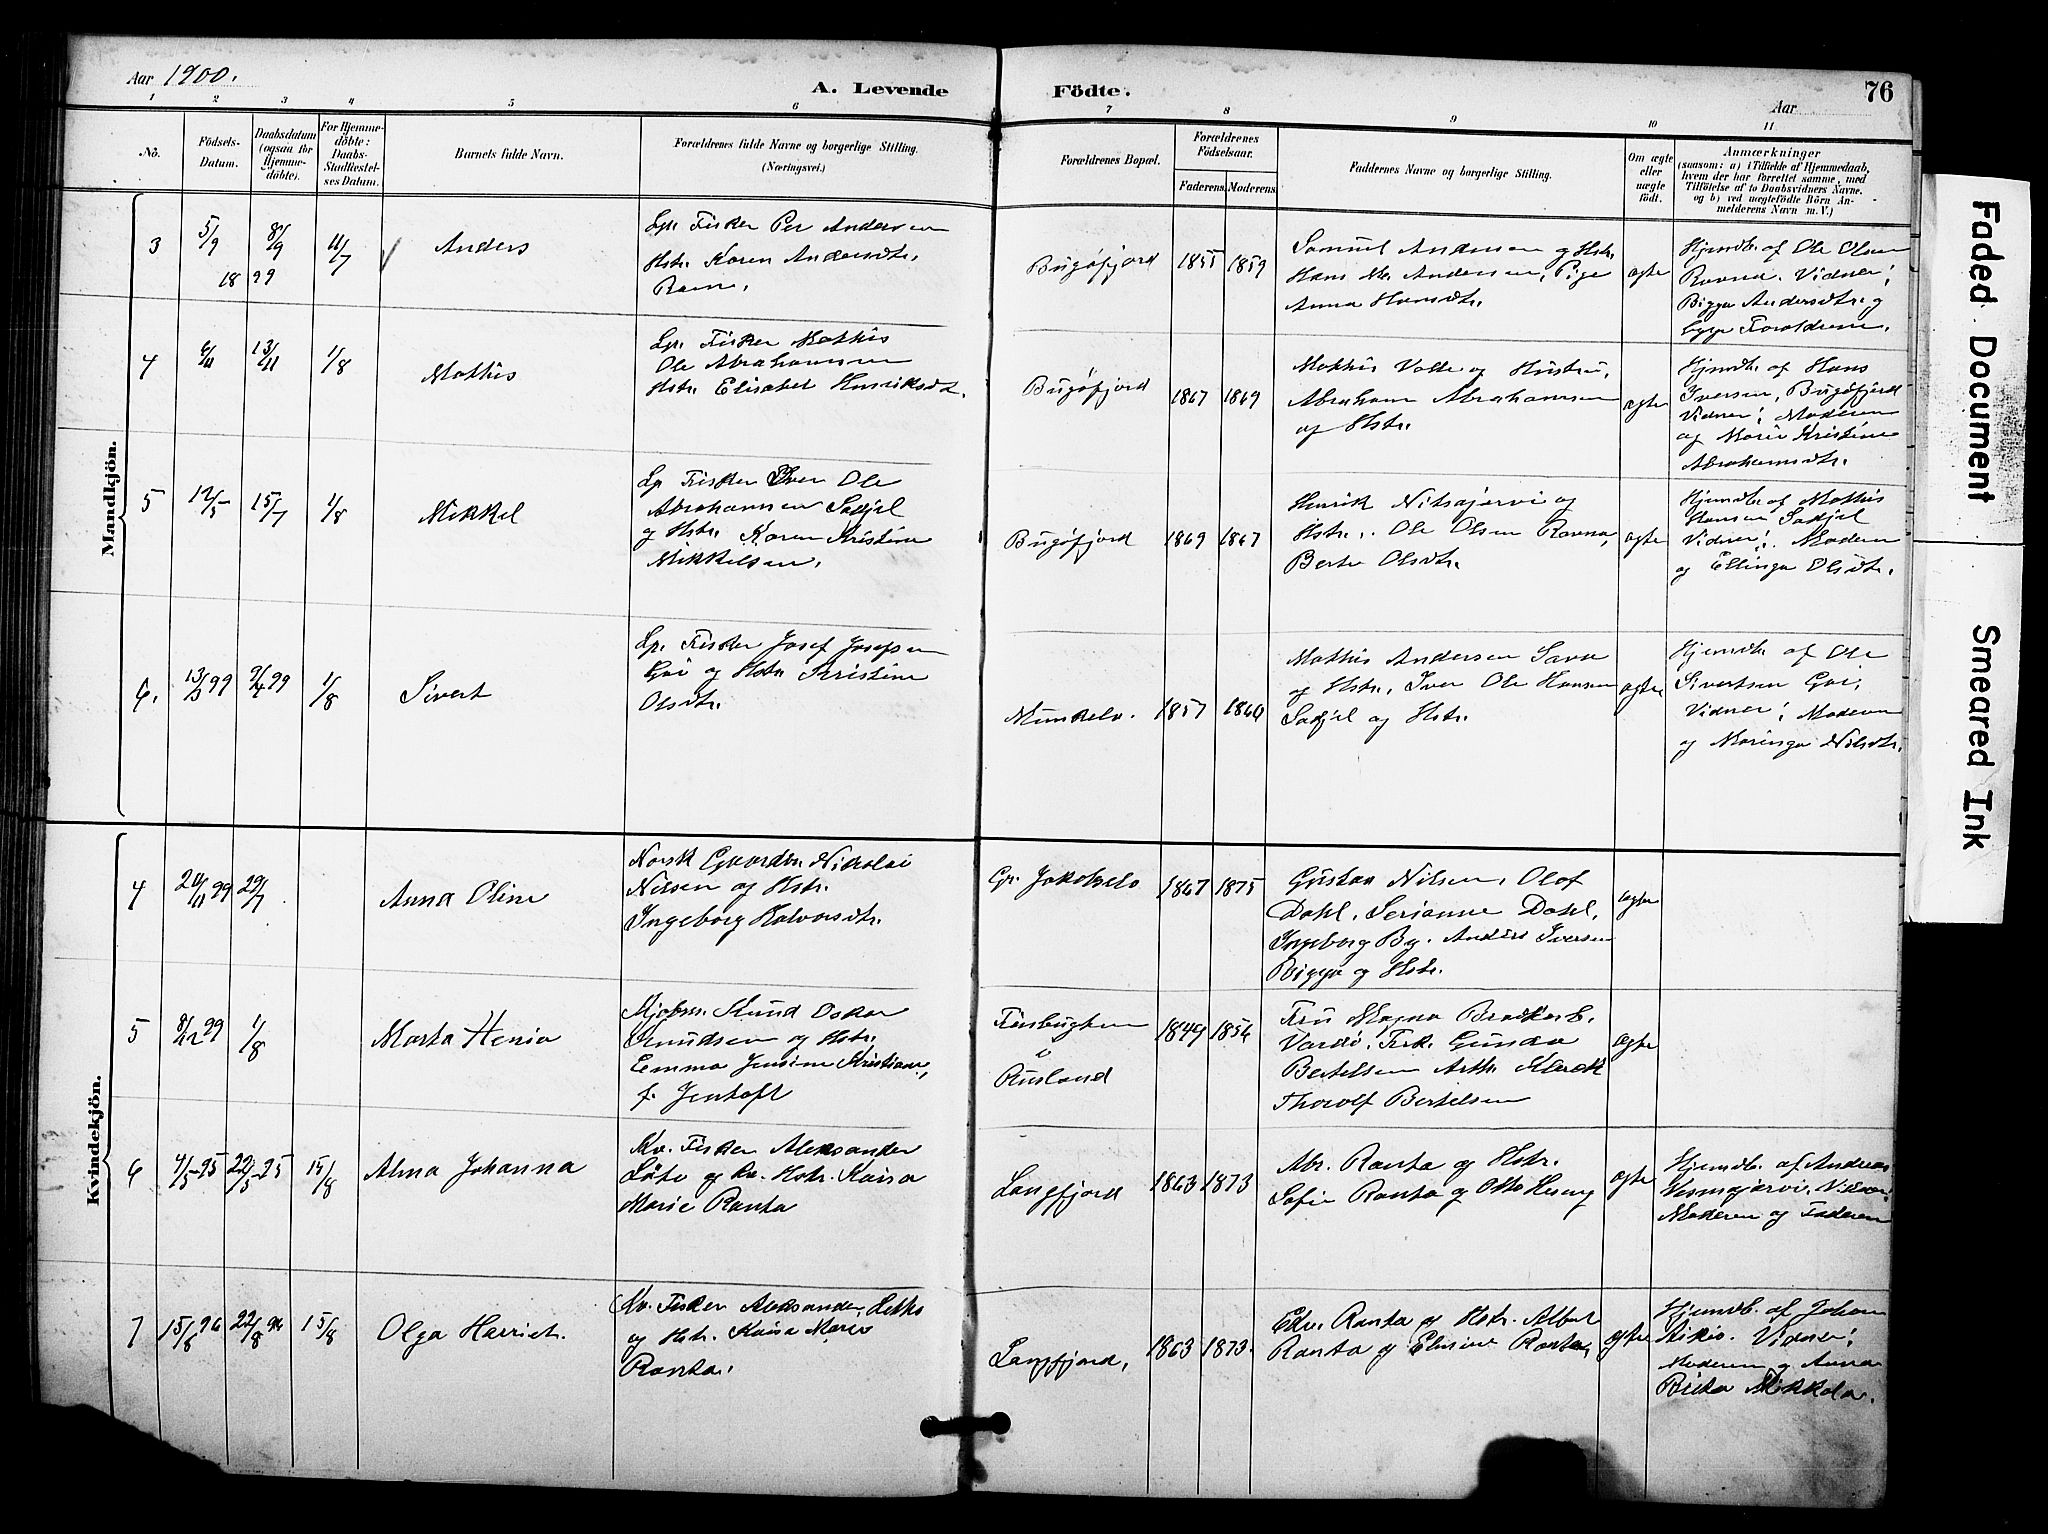 Aar 1900.
A. Levende
Födte.
Aar
76
1 2 3 4 5 6 7 8 9 10 11
No.
Födsels-
Datum.
Daabsdatum
(ogsaa for
Hjemme-
döbte).
For Hjemme-
döbte:
Daabs-
Stadfæstel-
ses Datum.
Barnets fulde Navn.
Forældrenes fulde Navne og borgerlige Stilling.
(Næringsvei.)
Forældrenes Bopæl.
Forældrenes
Födselsaar.
Faderens.
Moderens.
Faddernes Navne og borgerlige Stilling.
Om ægte
eller
uægte
født.
Anmærkninger
(saasom: a) i Tilfælde af Hjemmedaab,
hvem der har forrettet samme, med
Tilföielse af to Daabsvidners Navne.
og b) ved uægtefödte Börn An-
melderens Navn m. V.)
Mandkjön.
3
5/9
8/9
18 99
11/7
Anders
Lp. Fisker Per Andersen
Hstr. Karen Andersdtr.
Ravn.
Bugöfjord
1855
1859
Samuel Andersen og Hstr.
Hans Mr. Andersen, Pige
Anna Hansdtr.
ægte
Hjemdb. af Ole Olsen
Ravna. Vidner:
Bigga Andersdtr. og
Forældrene.
4
6/11
13/11
1/8
Mathis
Lp. Fisker Mathis
Ole Abrahamsen
Hstr. Elisabet Henriksdt.
Bugöfjord
1867
1869
Mathis Valle og Hustru,
Abraham Abrahamsen
og Hstr.
ægte
Hjemdb. af Hans
Iversen, Bugöfjord
Vidner: Moderen
og Marie Kristine
Abrahamsdtr.
5
12/5
15/7
1/8
Mikkel
Lp. Fisker Iver Ole
Abrahamsen Sadjel
og Hstr. Karen Kristine
Mikkelsen.
Bugöfjord
1869
1867
Henrik Nitsajarvi og
Hstr., Ole Olsen Ravna,
Berte Olsdtr.
ægte
Hjemdb. af Mathis
Hansen Sadjel
Vidner: Moderen
og Ellinga Olsdtr.
6.
13/3 99
9/4 99
1/8
Sivert
Lp. Fisker Josef Josefsen
Gai og Hstr. Kristine
Olsdtr.
Munkelv.
1857
1860
Mathis Andersen Sara
og Hstr., Iver Ole Hansen
Sadjel og Hstr.
ægte
Hjemdb. af Ole
Sivertsen Gai,
Vidner: Moderen
og Maringa Nilsdtr.
Kvindekjön.
4
20/11 99
29/7
Anna Oline
Norsk Gaardbr. Nikolai
Nilsen og Hstr.
Ingeborg Halvorsdtr.
Gr. Jakobselv
1867
1875
Gustav Nilsen, Olaf
Dahl, Serianne Dahl,
Ingeborg By. Anders Iversen
Bigga og Hstr.
ægte
5
8/12 99
1/8
Marta Henia
Kjøbm. Knud Oskar
Knudsen og Hstr.
Emma Jensine Kristiane,
f. Jentoft
i
Rusland
1849
1856
Fru Magna Brodkorb.
Vardö. Frk. Gunda
Bertelsen Arth. Klerck
Thorolf Bertelsen
ægte
6
4/5 95
22/5 95
15/8
Alma Johanna
Kv. Fisker Aleksander
og kv. Hstr. Kaisa
Marie Ranta
Langfjord
1863
1873
Abr. Ranta og Hstr.
Sofie Ranta og Otto
ægte
Hjemdb. af Andreas
Vidner:
Moderen og Faderen
7
15/8 96
22/8 96
15/8
Olga Harriet.
Kv. Fisker Aleksander
og Hstr. Kaisa Marie
Ranta.
Langfjord,
1863
1873.
Edv. Ranta og Hstr. Albert
Ranta og Elisine Ranta,
ægte
Hjemdb. af Johan
Aikio. Vidner:
Moderen og Anna
Brita Mikkola.
Faded Document
Smeared Ink